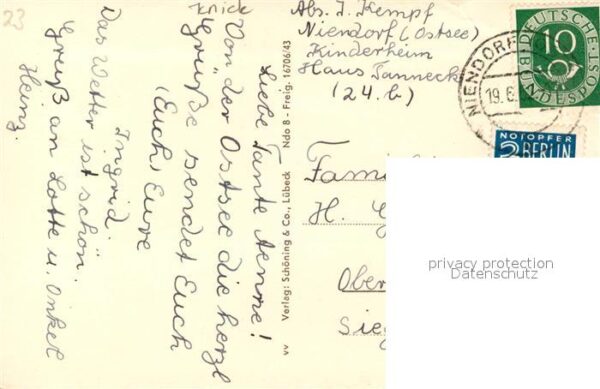 23
knick
Liebe Tante Aenne!
Von der Ostsee die herzl
Grüße sendet Euch
(Euch) Eure
Ingrid.
Das Wetter ist schön.
Gruß an Lotte u. Onkel
Heinz.
VV Verlag: Schöning & Co., Lübeck Ndo 8 - Freig. 16706/43
Abs. I. Kempf
Niendorf (Ostsee)
Kinderheim
Haus Tanneck
(24. b)
DEUTSCHE BUNDESPOST
10
NIENDORF
19.6.
NOTOPFER
2 BERLIN
Fami
H. G
Ober
Sieg
privacy protection
Datenschutz